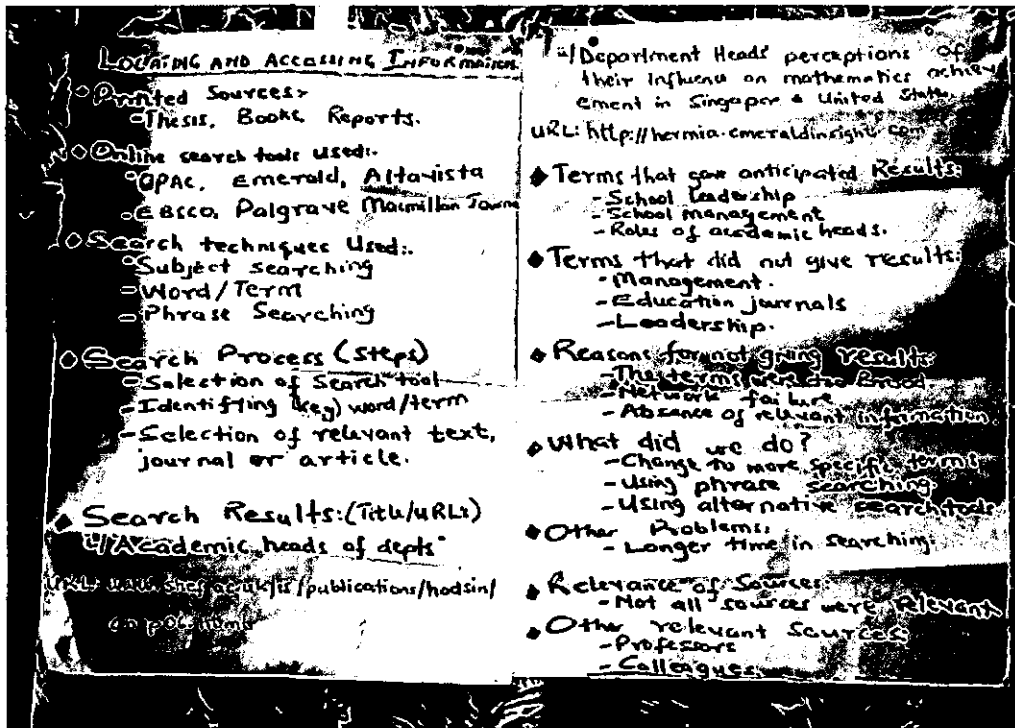 LOCATING AND ACCESSING INFORMATION
Printed Sources:
- Thesis, Books, Reports.
Online search tools used:.
- OPAC, Emerald, Altavista
- EBSCO, Palgrave Macmillan
Search techniques Used:.
- Subject searching
- Word/Term
- Phrase Searching
Search Process (steps)
- Selection of Search tool
- Identifying (key) word/term
- Selection of relevant text,
journal or article.
Search Results: (Title/URLs)
"Academic heads of depts"
/publications/hodsin/
Department Heads' perceptions of
their influence on mathematics achiev
ement in Singapor & United
URL: http://hermia.emeraldinsight.com
Terms that gave anticipated Results:
- School leadership
- School management
- Roles of academic heads.
Terms that did not give results:
- Management.
- Education journals
- Leadership.
Reasons for not giving results:
- The terms were too Broad
- Network failure
- Absence of relevant information
What did we do?
- Change to more specific terms
- Using phrase searching.
- Using alternative search tools
Other Problems:
- Longer time in searching.
Relevance of Sources
- Not all sources were relevant
Other relevant sources:
- Professors
- Colleagues.